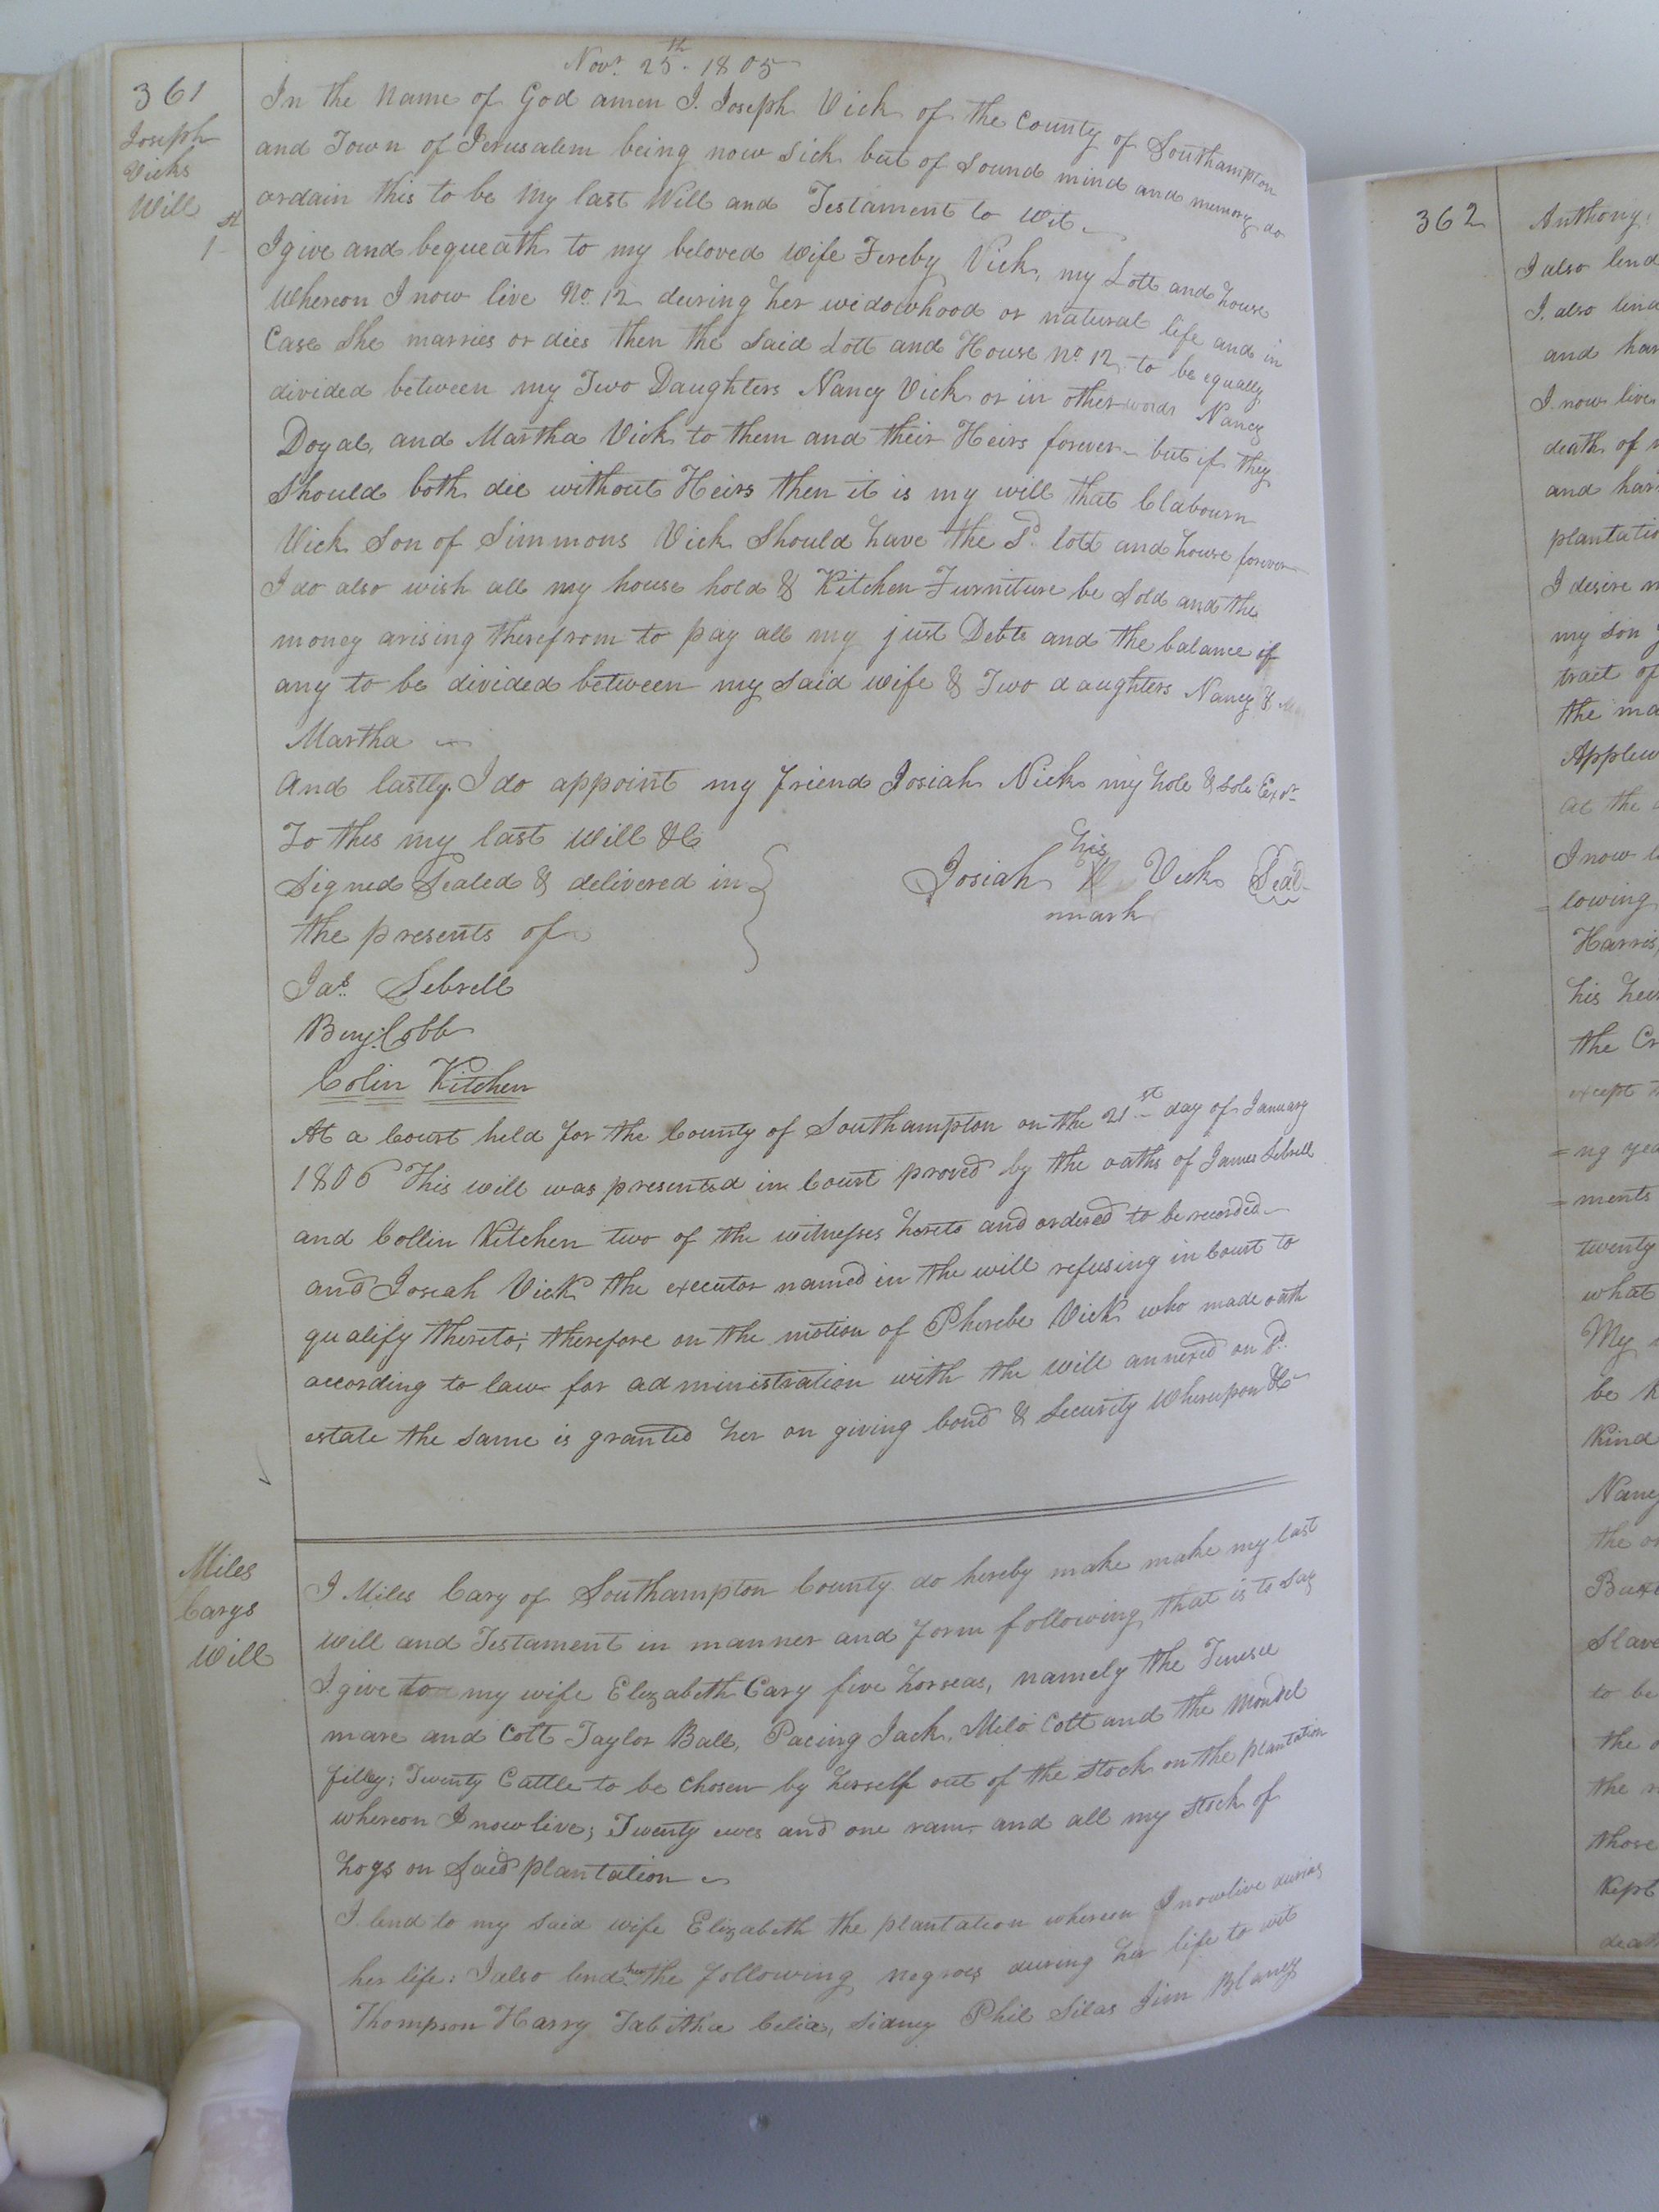 Novr. 25th. 1805
361
Joseph
Vicks
Will
In the Name of God amen I. Joseph Vick of the County of Southampton
and Town of Jerusalem being now Sick but of Sound mind and memory do
ordain this to be my last Will and Testament to wit
1st
I give and bequeath to my beloved wife Fereby Vick, my Lott and house
Whereon I now live No. 12 during her widowhood or natural life and in
Case She marries or dies then the Said Lott and House No. 12 to be equally
divided between my Two Daughters Nancy Vick or in other words Nancy
Doyal, and Martha Vick to them and their Heirs forever but if they
Should both die without Heirs then it is my will that Clabourn
Vick Son of Simmons Vick Should have the Sd. lott and house forever
I do also wish all my house hold & Kitchen Furniture be Sold and the
money arising therefrom to pay all my just Debts and the balance if
any to be divided between my Said wife & Two daughters Nancy &
Martha
And lastly. I do appoint my friend Josiah Vick my hole & sole Exor.
To this my last Will &c
Signed Sealed & delivered in
the presents of
Josiah his Vick Seal
mark
Jas. Sebrell
Benj. Cobb
Colin Kitchen
At a Court held for the County of Southampton on the 21st day of January
1806 This will was presented in Court proved by the oaths of James Sebrell
and Collin Kitchen two of the witnesses hereto and ordered to be recorded
and Josiah Vick the executor named in the will refusing in Court to
qualify thereto; therefore on the motion of Pherebe Vick who made oath
according to law for administration with the will annexed on sd.
estate the same is granted her on giving bond & Security Whereupon &c
Miles
Carys
Will
I Miles Cary of Southampton County do hereby make make my last
Will and Testament in manner and form following that is to say
I give to my wife Elizabeth Cary five horseas, namely the
mare and Colt Taylor Ball, Pacing Jack, Milo Colt and the
filley; Twenty Cattle to be Chosen by herself out of the Stock on the plantation
whereon I now live; Twenty ewes and one ram and all my Stock of
hogs on Said plantation
I lend to my said wife Elizabeth the plantation whereon I now live during
her life: I also lend her the following negroes during her life to wit
Thompson Harry Tabitha Celia, Sidney Phil Silas Jim Blaney
362
Anthony
I also lend
I. also lend
and har
I. now live
death of
and har
plantatio
I desire
my Son
tract of
the ma
Applew
at the
I now l
lowing
Harris,
his hei
the Cr
except
=ng yea
=ments
twenty
what
My
be k
Kind
Nancy
the
Slave
to be
the
the
those
Kept
death